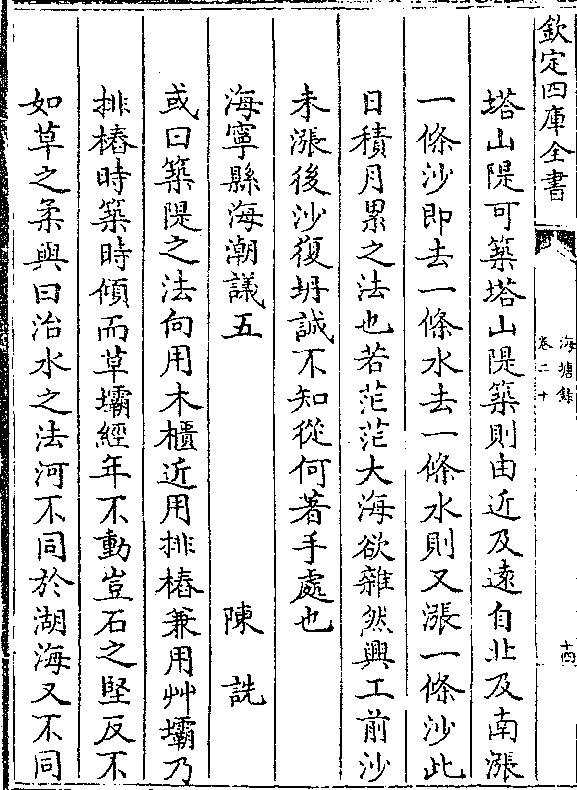 欽定四庫全書
海塘錄
卷二十
十四
塔山隄可築塔山隄築則由近及遠自北及南漲
一條沙即去一條水去一條水則又漲一條沙此
日積月累之法也若茫茫大海欲雜然興工前沙
未漲後沙復坍誠不知從何著手處也
海寧縣海潮議五
陳詵
或曰築隄之法向用木櫃近用排樁兼用艸壩乃
排樁時築時傾而草壩經年不動豈石之堅反不
如草之柔與曰治水之法河不同於湖海又不同